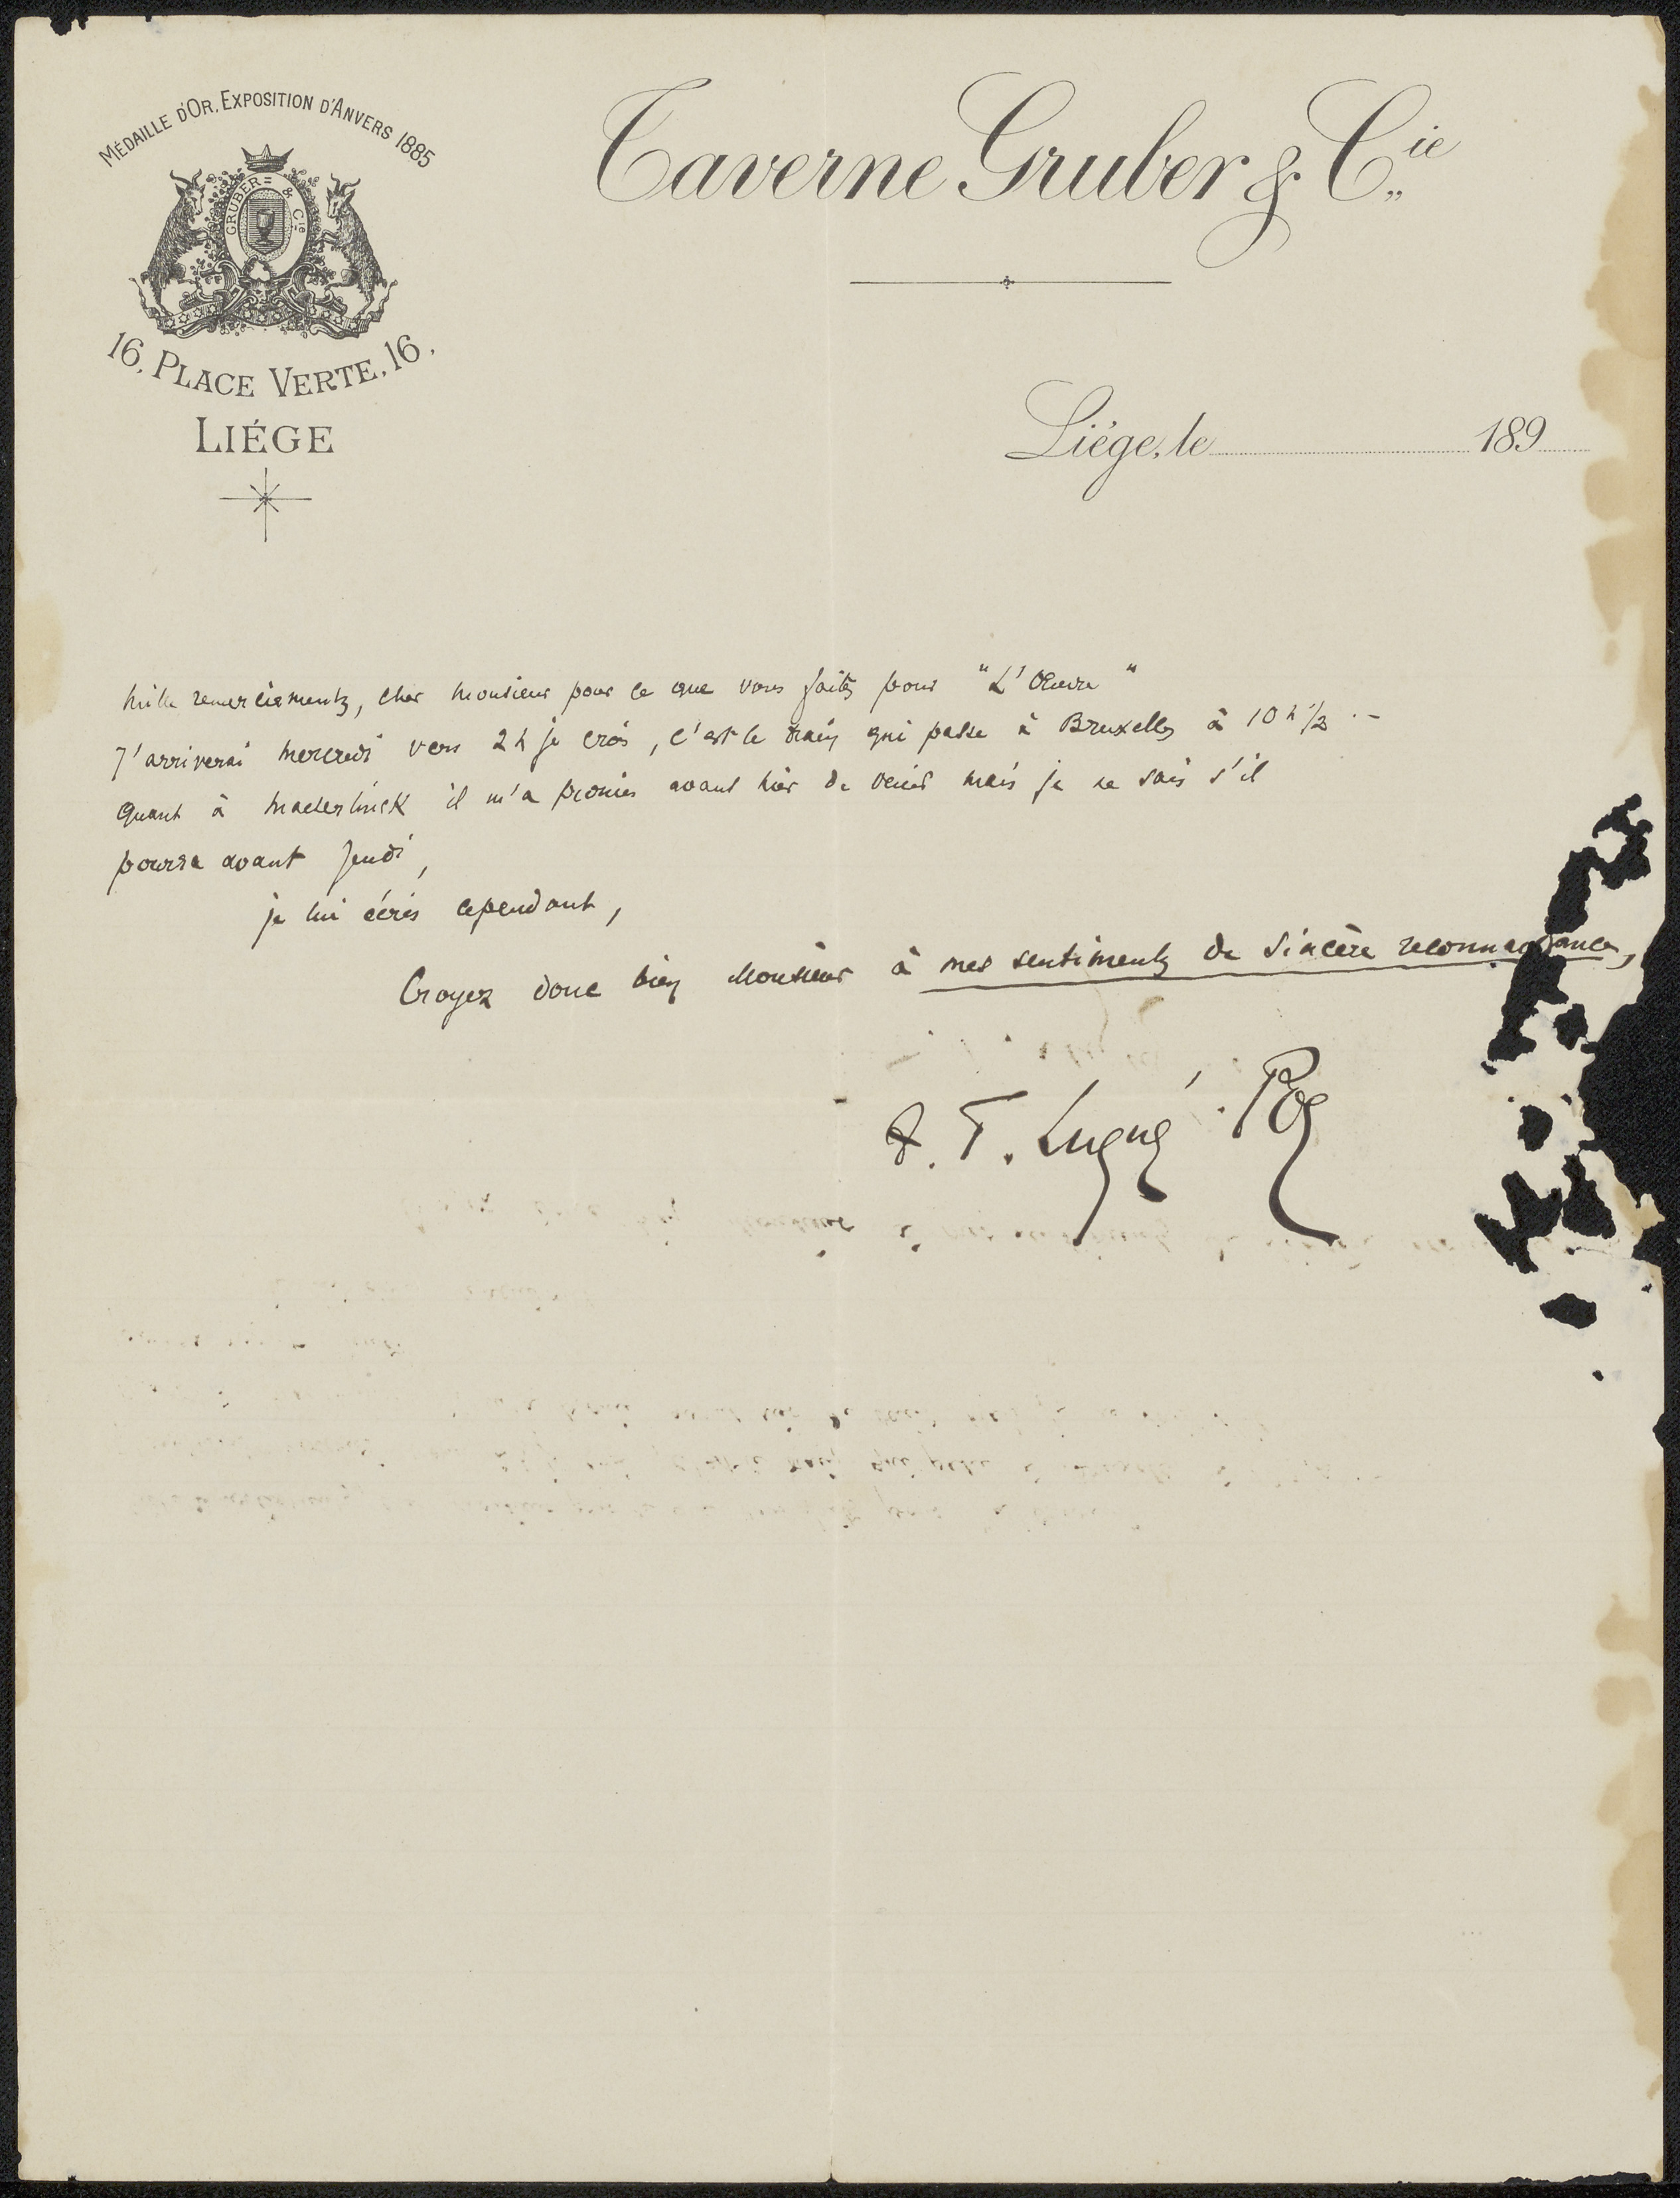 MÉDAILLE D'OR, EXPOSITION D'ANVERS 1885
GRUBER & Cie
16, PLACE VERTE, 16.
LIÉGE
Taverne Gruber & Cie
Liége, le 189
Mille remerciements, cher Monsieur pour ce que vous faites pour "L'Œuvre"
J'arriverai mercredi vers 2 h je crois, c'est le train qui passe à Bruxelles à 10 h 1/2 . -
Quant à Maeterlinck il m'a promis avant hier de venir mais je ne sais s'il
pourra avant Jeudi,
je lui écris cependant,
Croyez donc bien Monsieur à mes sentiments de sincère reconnaissance,
A. F. Lugné-Poe